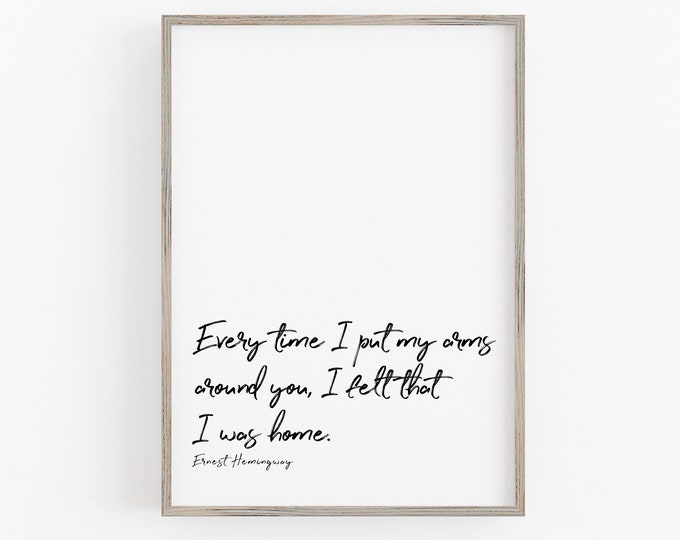 Every time I put my arms
around you, I felt that
I was home.
Ernest Hemingway